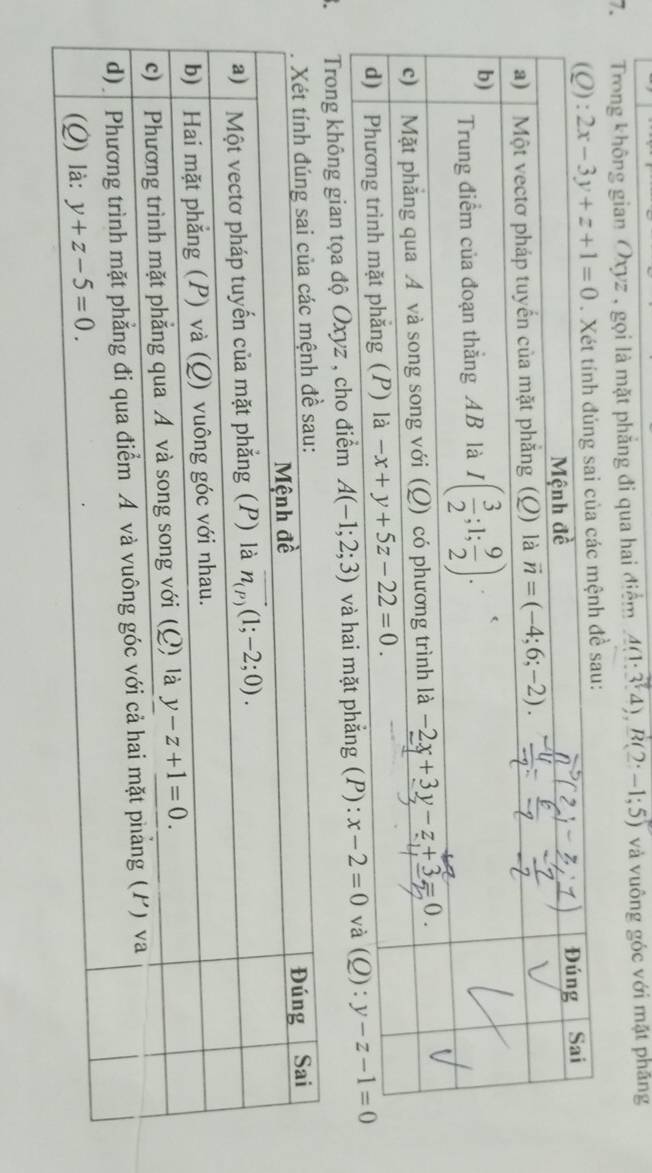 7. Trong không gian Oxyz , gọi là mặt phẳng đi qua hai điểm A(1; 3; 4), B(2; −1; 5) và vuông góc với mặt phẳng
(Q) : 2x − 3y + z + 1 = 0 . Xét tính đúng sai của các mệnh đề sau:
Mệnh đề Đúng Sai
a) Một vectơ pháp tuyến của mặt phẳng (Q) là n⃗ = (−4; 6; −2) .
b) Trung điểm của đoạn thẳng AB là I(3/2; 1; 9/2) .
c) Mặt phẳng qua A và song song với (Q) có phương trình là −2x + 3y − z + 3 = 0 .
d) Phương trình mặt phẳng (P) là −x + y + 5z − 22 = 0 .
Trong không gian tọa độ Oxyz , cho điểm A(−1; 2; 3) và hai mặt phẳng (P) : x − 2 = 0 và (Q) : y − z − 1 = 0
. Xét tính đúng sai của các mệnh đề sau:
Mệnh đề Đúng Sai
a) Một vectơ pháp tuyến của mặt phẳng (P) là n(P) (1; −2; 0) .
b) Hai mặt phẳng (P) và (Q) vuông góc với nhau.
c) Phương trình mặt phẳng qua A và song song với (Q) là y − z + 1 = 0 .
d) Phương trình mặt phẳng đi qua điểm A và vuông góc với cả hai mặt phẳng (P) và
(Q) là: y + z − 5 = 0 .